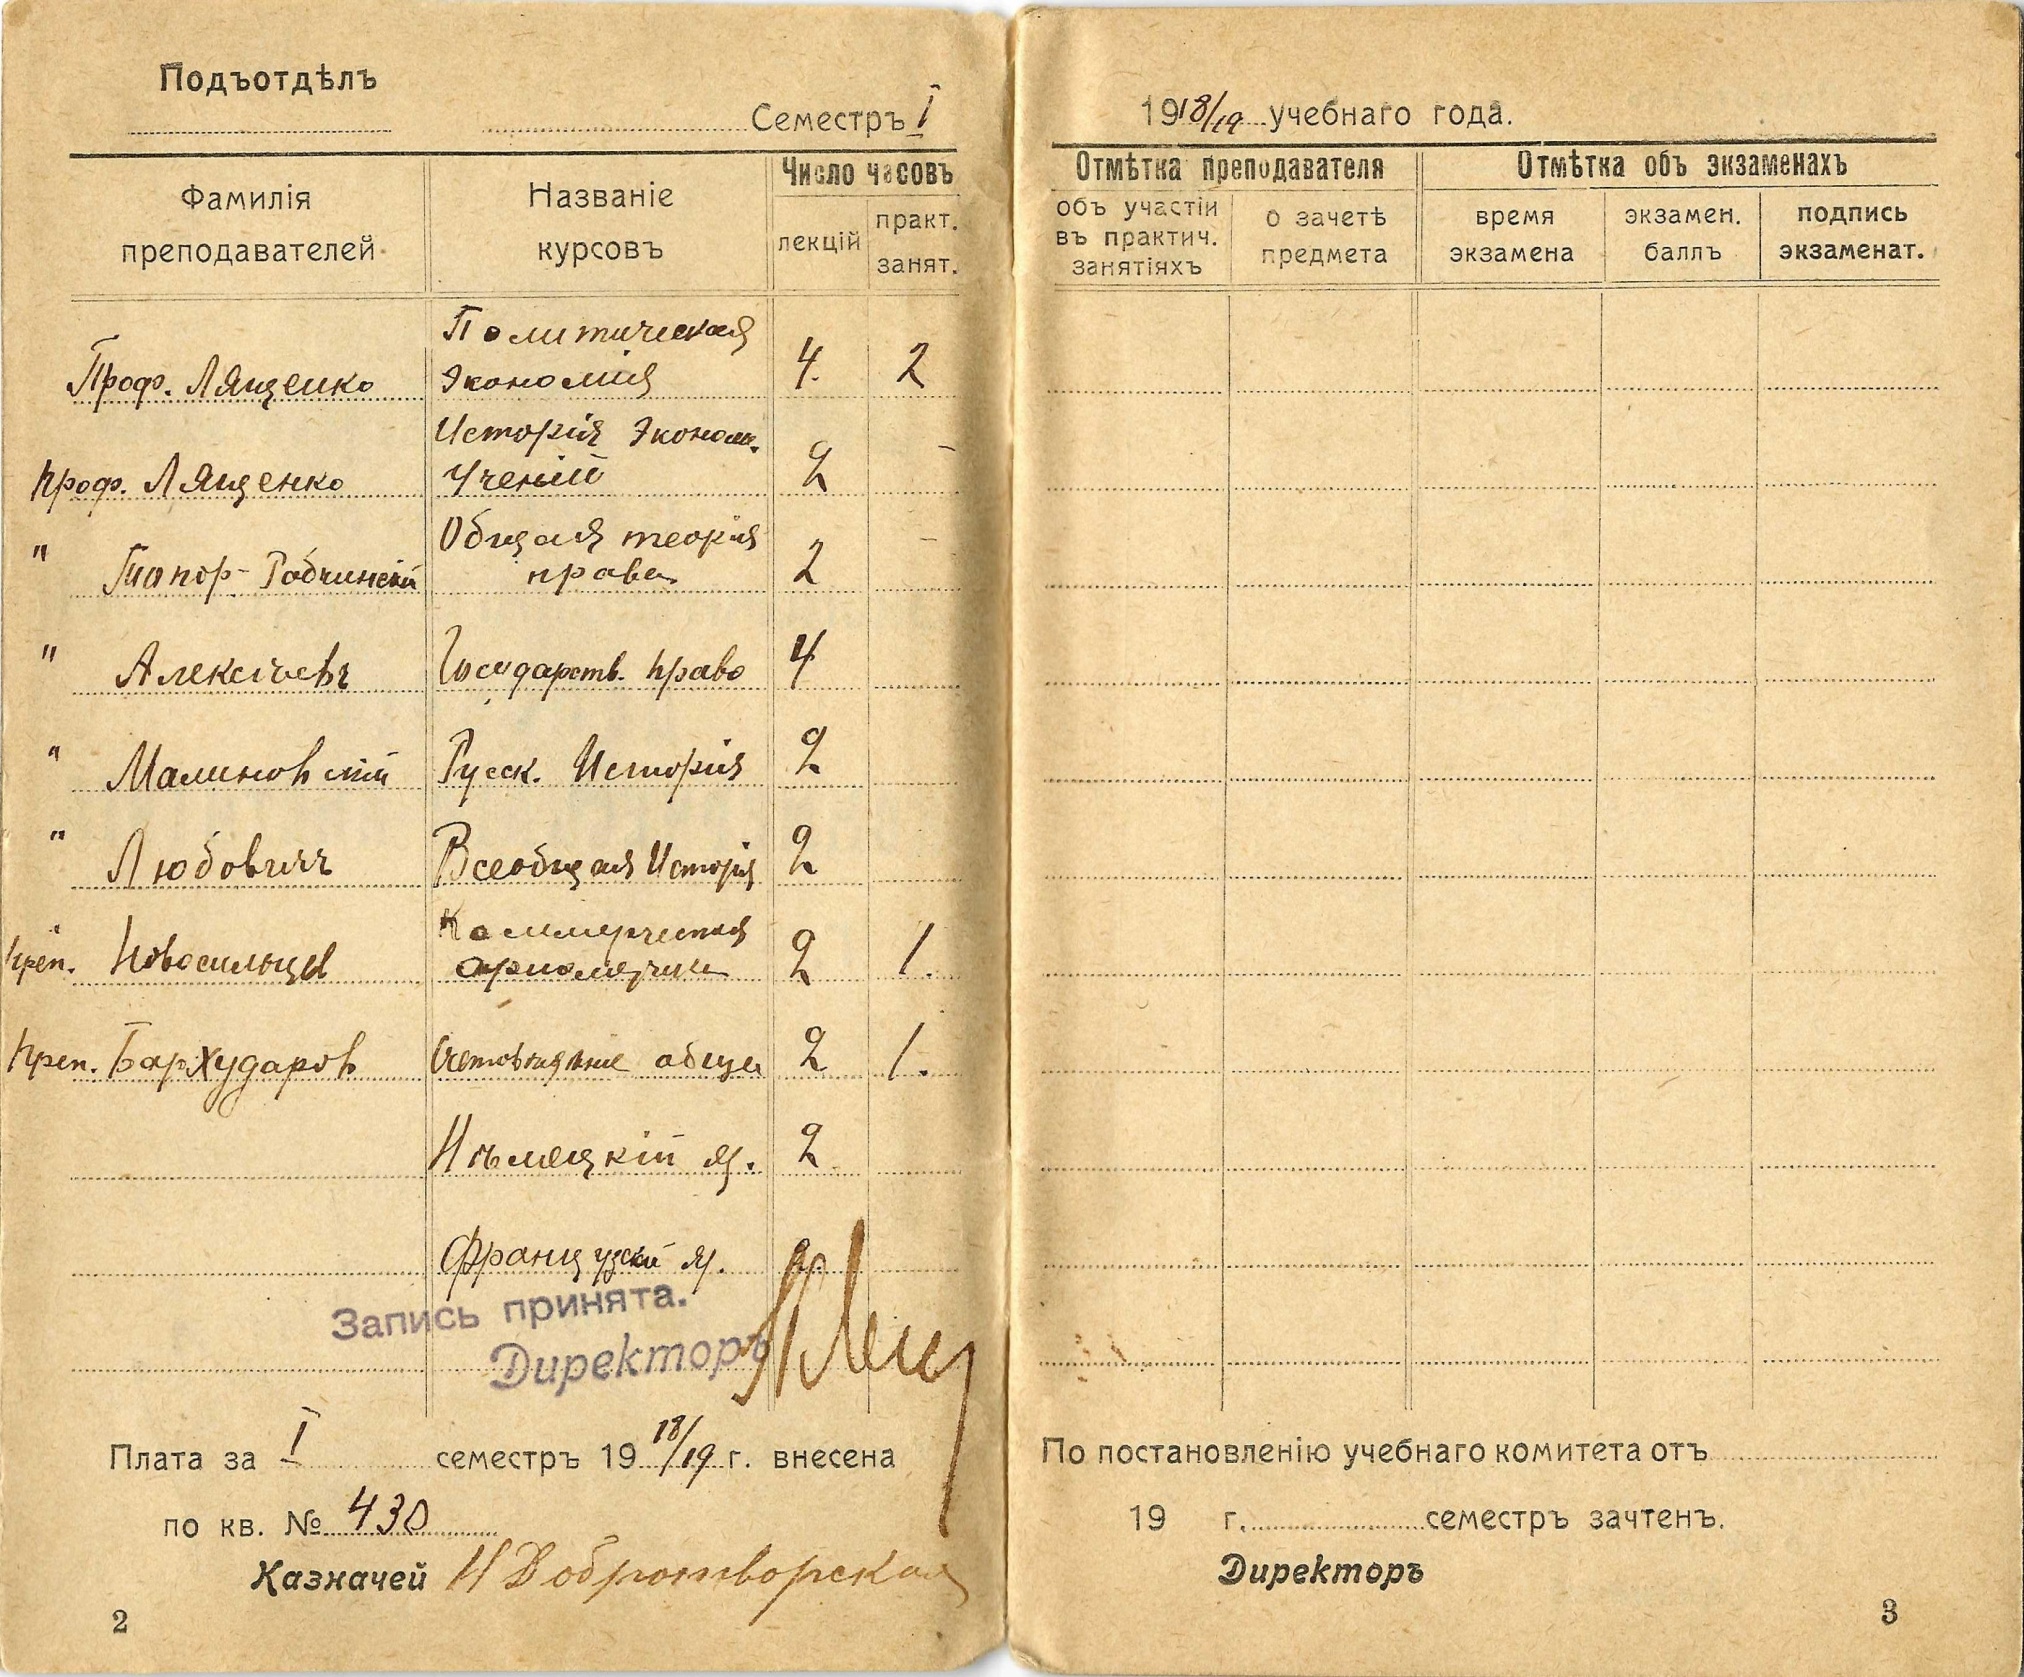 Подъотдѣлъ
Семестръ I
Фамилія преподавателей
Названіе курсовъ
Число часовъ
лекцій
практ. занят.
Политическая
Проф. Лященко Экономія 4. 2
Исторія Эконом.
проф. Лященко Ученій 2 -
Общая теорія
" Топор-Рабчинскій права 2 -
" Алексѣевъ Государств. право 4
" Малиновскій Русск. Исторія 2
" Любовичъ Всеобщая Исторія 2
Коммерческая
преп. Новосильцев арифметика 2 1.
преп. Бархударов Счетовѣдѣніе общее 2 1.
Нѣмецкій яз. 2
Французскій яз. 2
Запись принята.
Директоръ
Плата за I семестръ 1918/19 г. внесена
по кв. № 430
Казначей Н Добротворская
2
1918/19 учебнаго года.
Отмѣтка преподавателя
Отмѣтка объ экзаменахъ
объ участіи въ практич. занятіяхъ
о зачетѣ предмета
время экзамена
экзамен. баллъ
подпись экзаменат.
По постановленію учебнаго комитета отъ
19 г. семестръ зачтенъ.
Директоръ
3